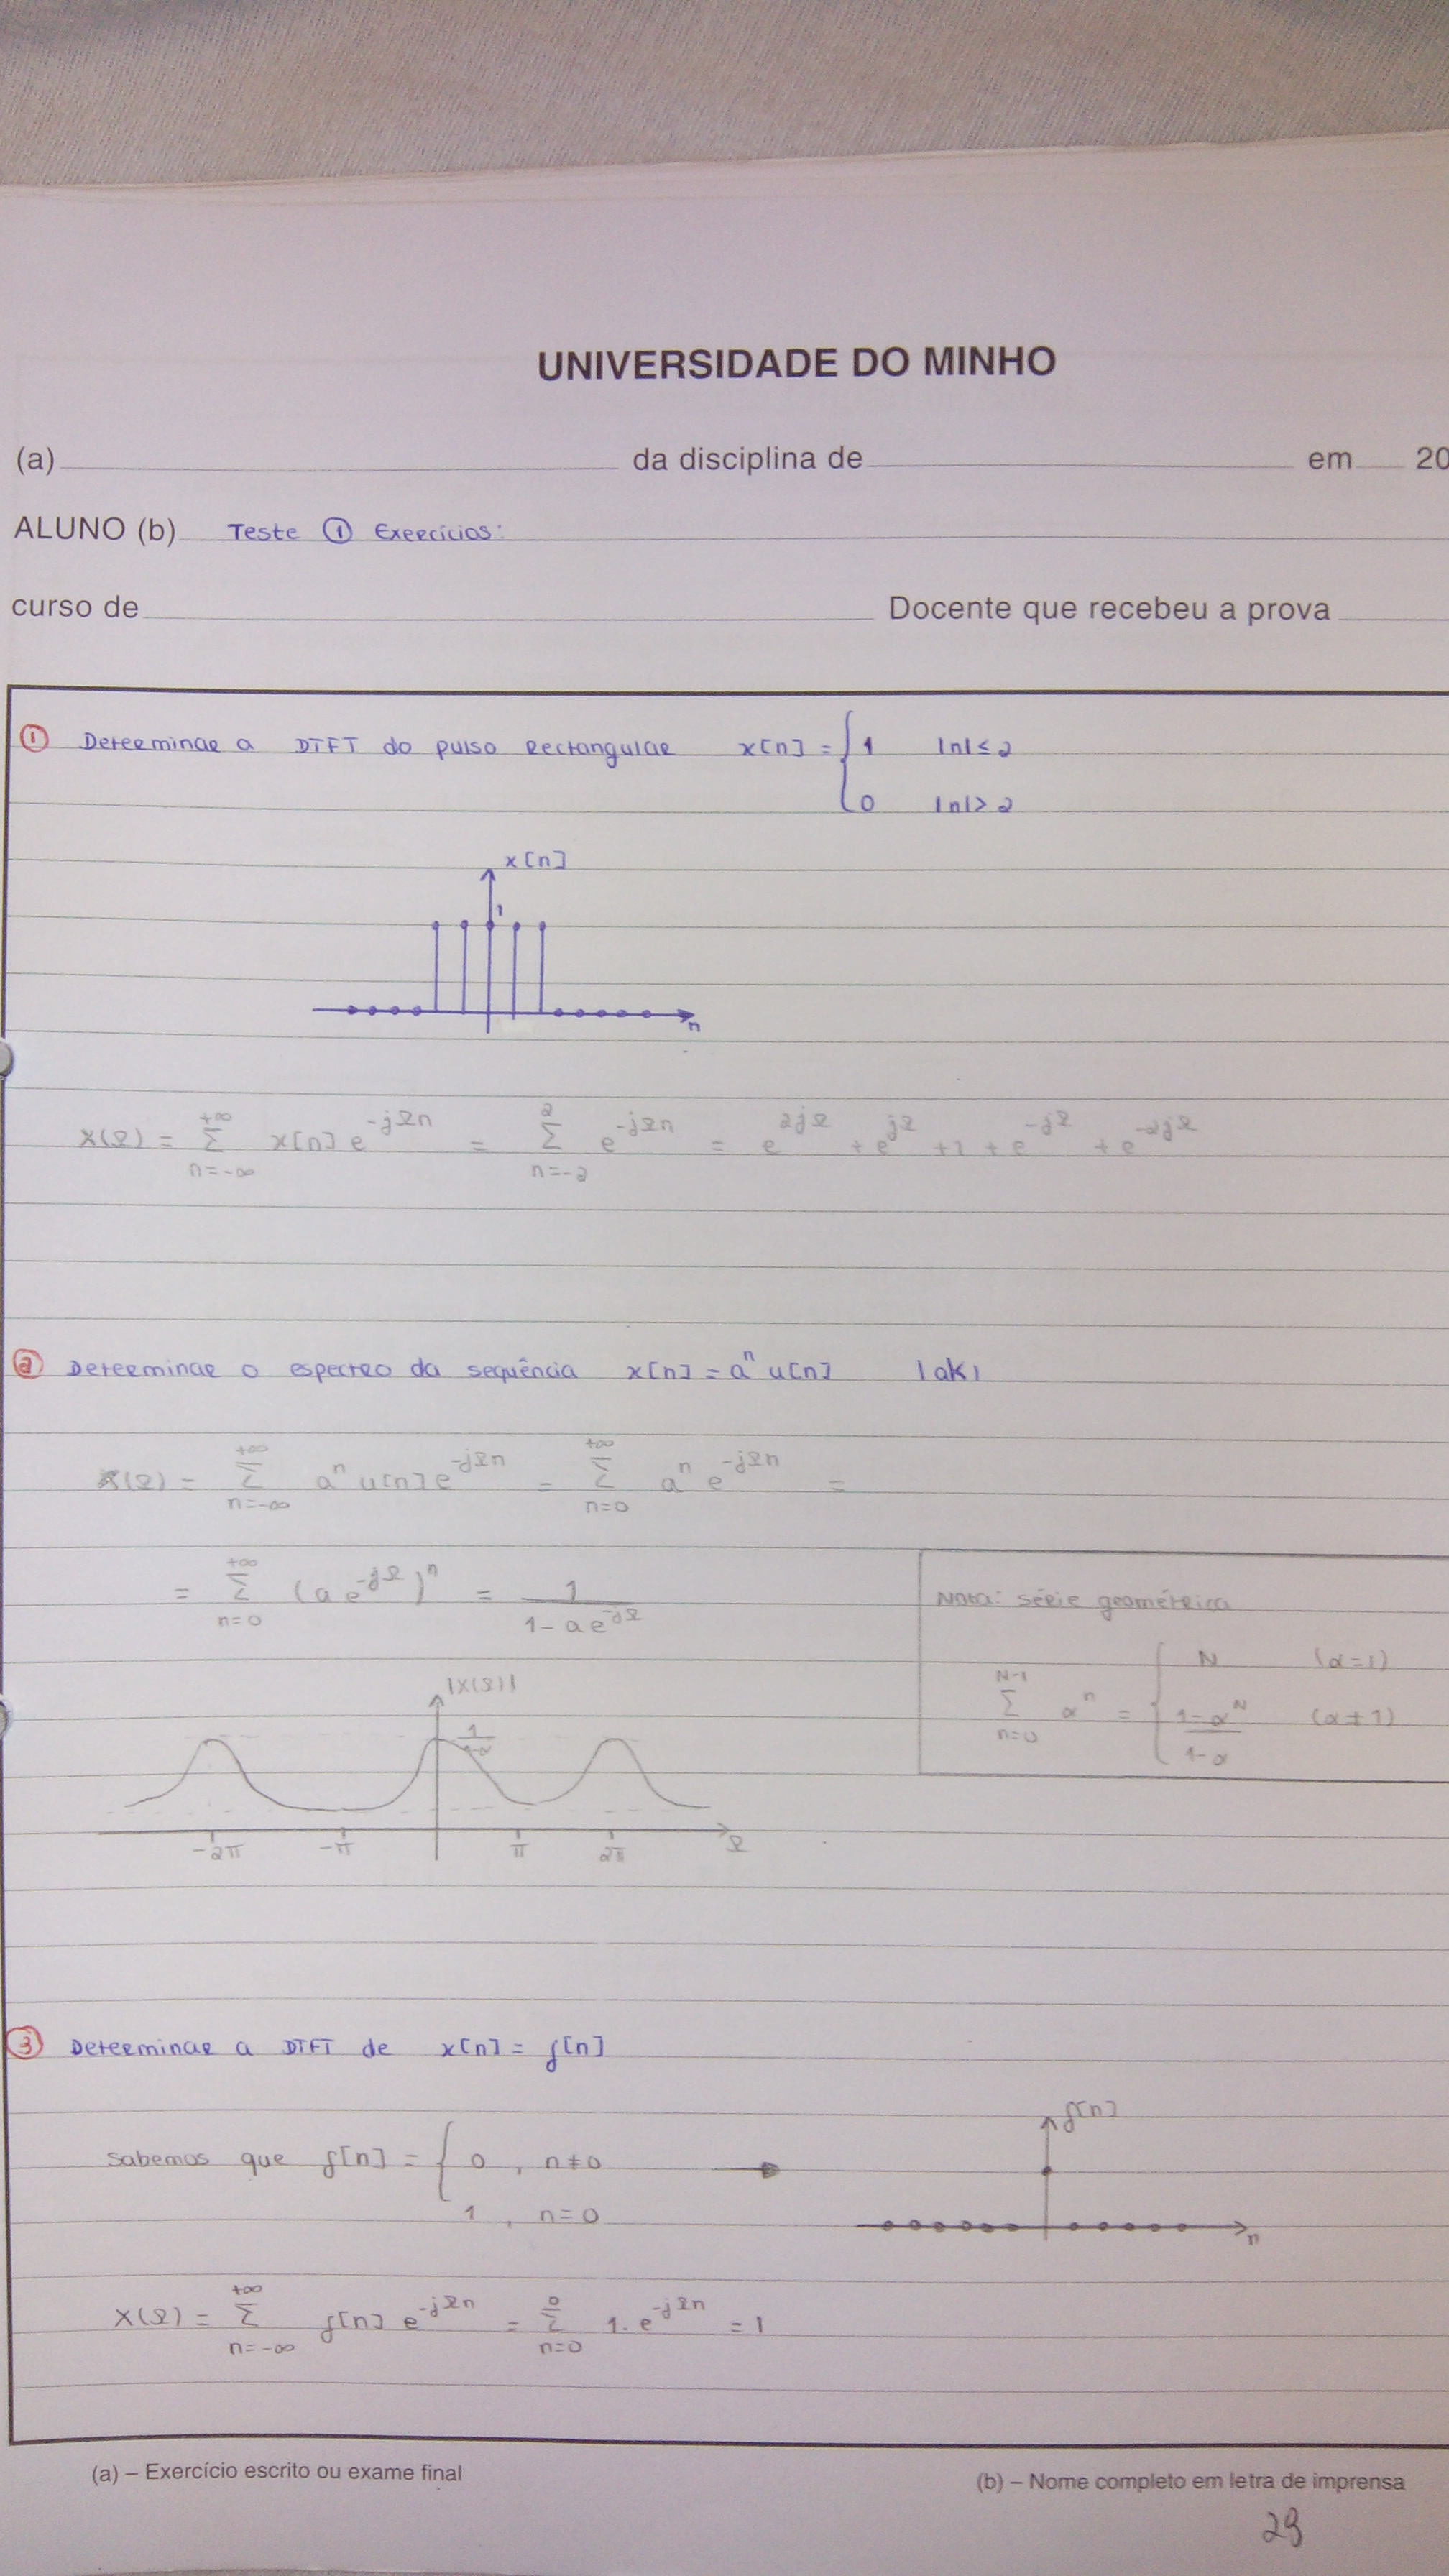 UNIVERSIDADE DO MINHO
(a) da disciplina de em 20
ALUNO (b) Teste ① Exercícios:
curso de Docente que recebeu a prova
① Determinar a DTFT do pulso Rectangular x[n] = { 1 |n| ≤ 2
0 |n| > 2
x[n]
1
n
X(Ω) = Σ_{n=-∞}^{+∞} x[n] e^{-jΩn} = Σ_{n=-2}^{2} e^{-jΩn} = e^{2jΩ} + e^{jΩ} + 1 + e^{-jΩ} + e^{-2jΩ}
② Determinar o espectro da sequência x[n] = a^n u[n] |a|<1
X(Ω) = Σ_{n=-∞}^{+∞} a^n u[n] e^{-jΩn} = Σ_{n=0}^{+∞} a^n e^{-jΩn} =
= Σ_{n=0}^{+∞} (a e^{-jΩ})^n = 1 / (1 - a e^{-jΩ})
Nota: série geométrica
Σ_{n=0}^{N-1} α^n = { N (α=1)
(1-α^N) / (1-α) (α≠1)
|X(Ω)|
1/(1-α)
-2π -π π 2π Ω
③ Determinar a DTFT de x[n] = δ[n]
Sabemos que δ[n] = { 0 , n≠0
1 , n=0
δ[n]
n
X(Ω) = Σ_{n=-∞}^{+∞} δ[n] e^{-jΩn} = Σ_{n=0}^{0} 1. e^{-jΩn} = 1
(a) – Exercício escrito ou exame final
(b) – Nome completo em letra de imprensa
29